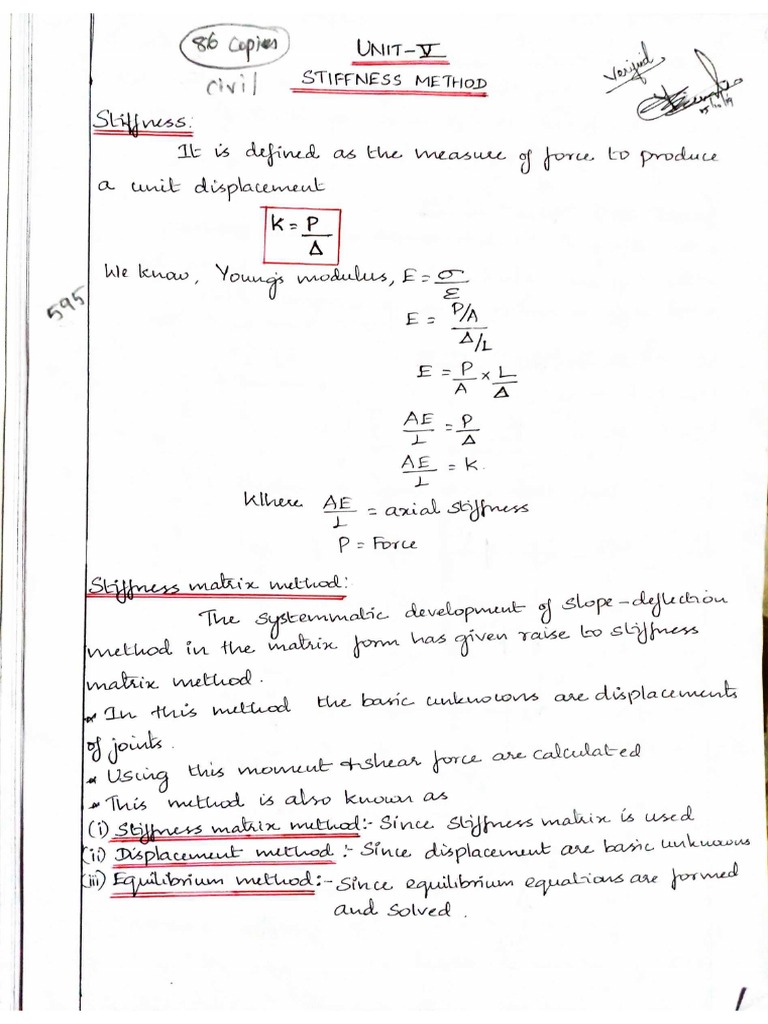 86 Copies
civil
UNIT-V
STIFFNESS METHOD
Verified
Stiffness:
It is defined as the measure of force to produce
a unit displacement
K = P/Δ
We know, Young's modulus, E = σ/ε
595
E = P/A / Δ/L
E = P/A × L/Δ
AE/L = P/Δ
AE/L = K.
Where AE/L = axial stiffness
P = Force
Stiffness matrix method:
The systemmatic development of slope-deflection
method in the matrix form has given raise to stiffness
matrix method.
* In this method the basic unknowns are displacements
of joints.
* Using this moment & shear force are calculated
* This method is also known as
(i) Stiffness matrix method:- Since stiffness matrix is used
(ii) Displacement method :- Since displacement are basic unknowns
(iii) Equilibrium method:- Since equilibrium equations are formed
and solved.
1